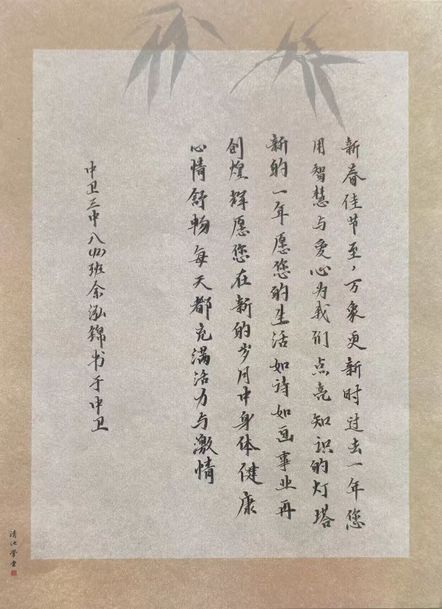 新春佳节至，万象更新时过去一年您
用智慧与爱心为我们点亮知识的灯塔
新的一年愿您的生活如诗如画事业再
创煌辉愿您在新的岁月中身体健康
心情舒畅每天都充满活力与激情
中卫三中八(4)班余泓锦书于中卫